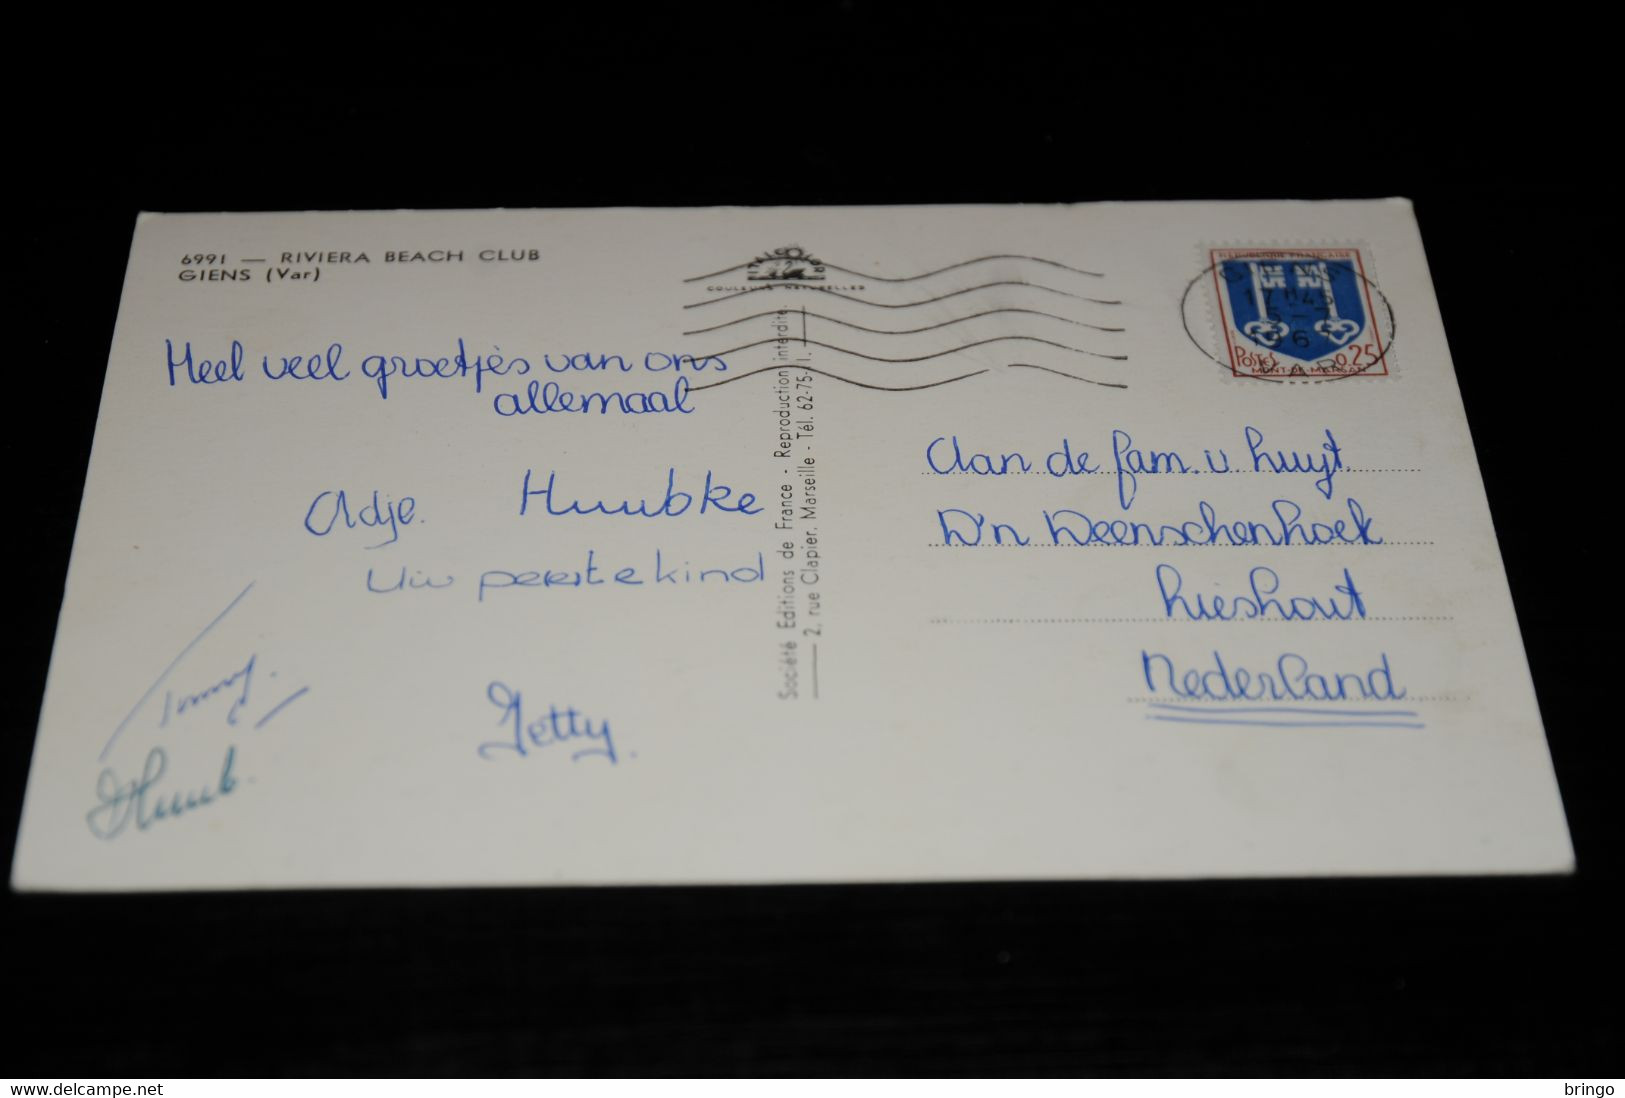 6991 — RIVIERA BEACH CLUB
GIENS (Var)
COULEURS NATURELLES
Heel veel groetjes van ons
allemaal
Adje. Huubke
Uw peetekind
Tonny.
Huub.
Jetty.
Société Editions de France - Reproduction interdite.
2, rue Clapier, Marseille - Tél. 62-75-
REPUBLIQUE FRANCAISE
POSTES 0,25
MONT-DE-MARSAN
GIENS
17 H 45
5-7
1967
VAR
Aan de fam. v huijt.
D'n Deenschenhoek
Lieshout
Nederland
bringo
delcampe.net